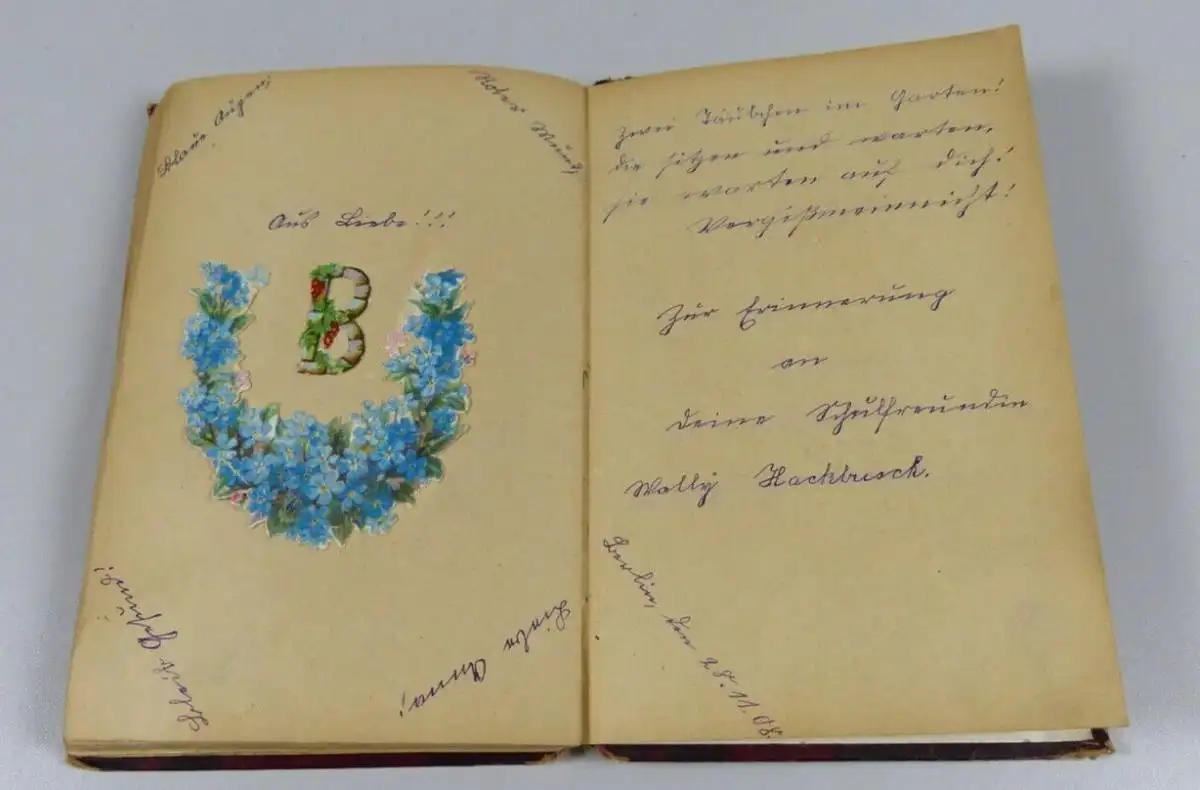 Blaue Augen,
Roter Mund,
Aus Liebe!!!
B
Liebe Anna,
bleib gesund!
Zwei Täubchen im Garten!
die sitzen und warten,
sie warten auf dich!
Vergißmeinnicht!
Zur Erinnerung
an
deine Schulfreundin
Wally Hackbusch.
Berlin, den 28.11.08.